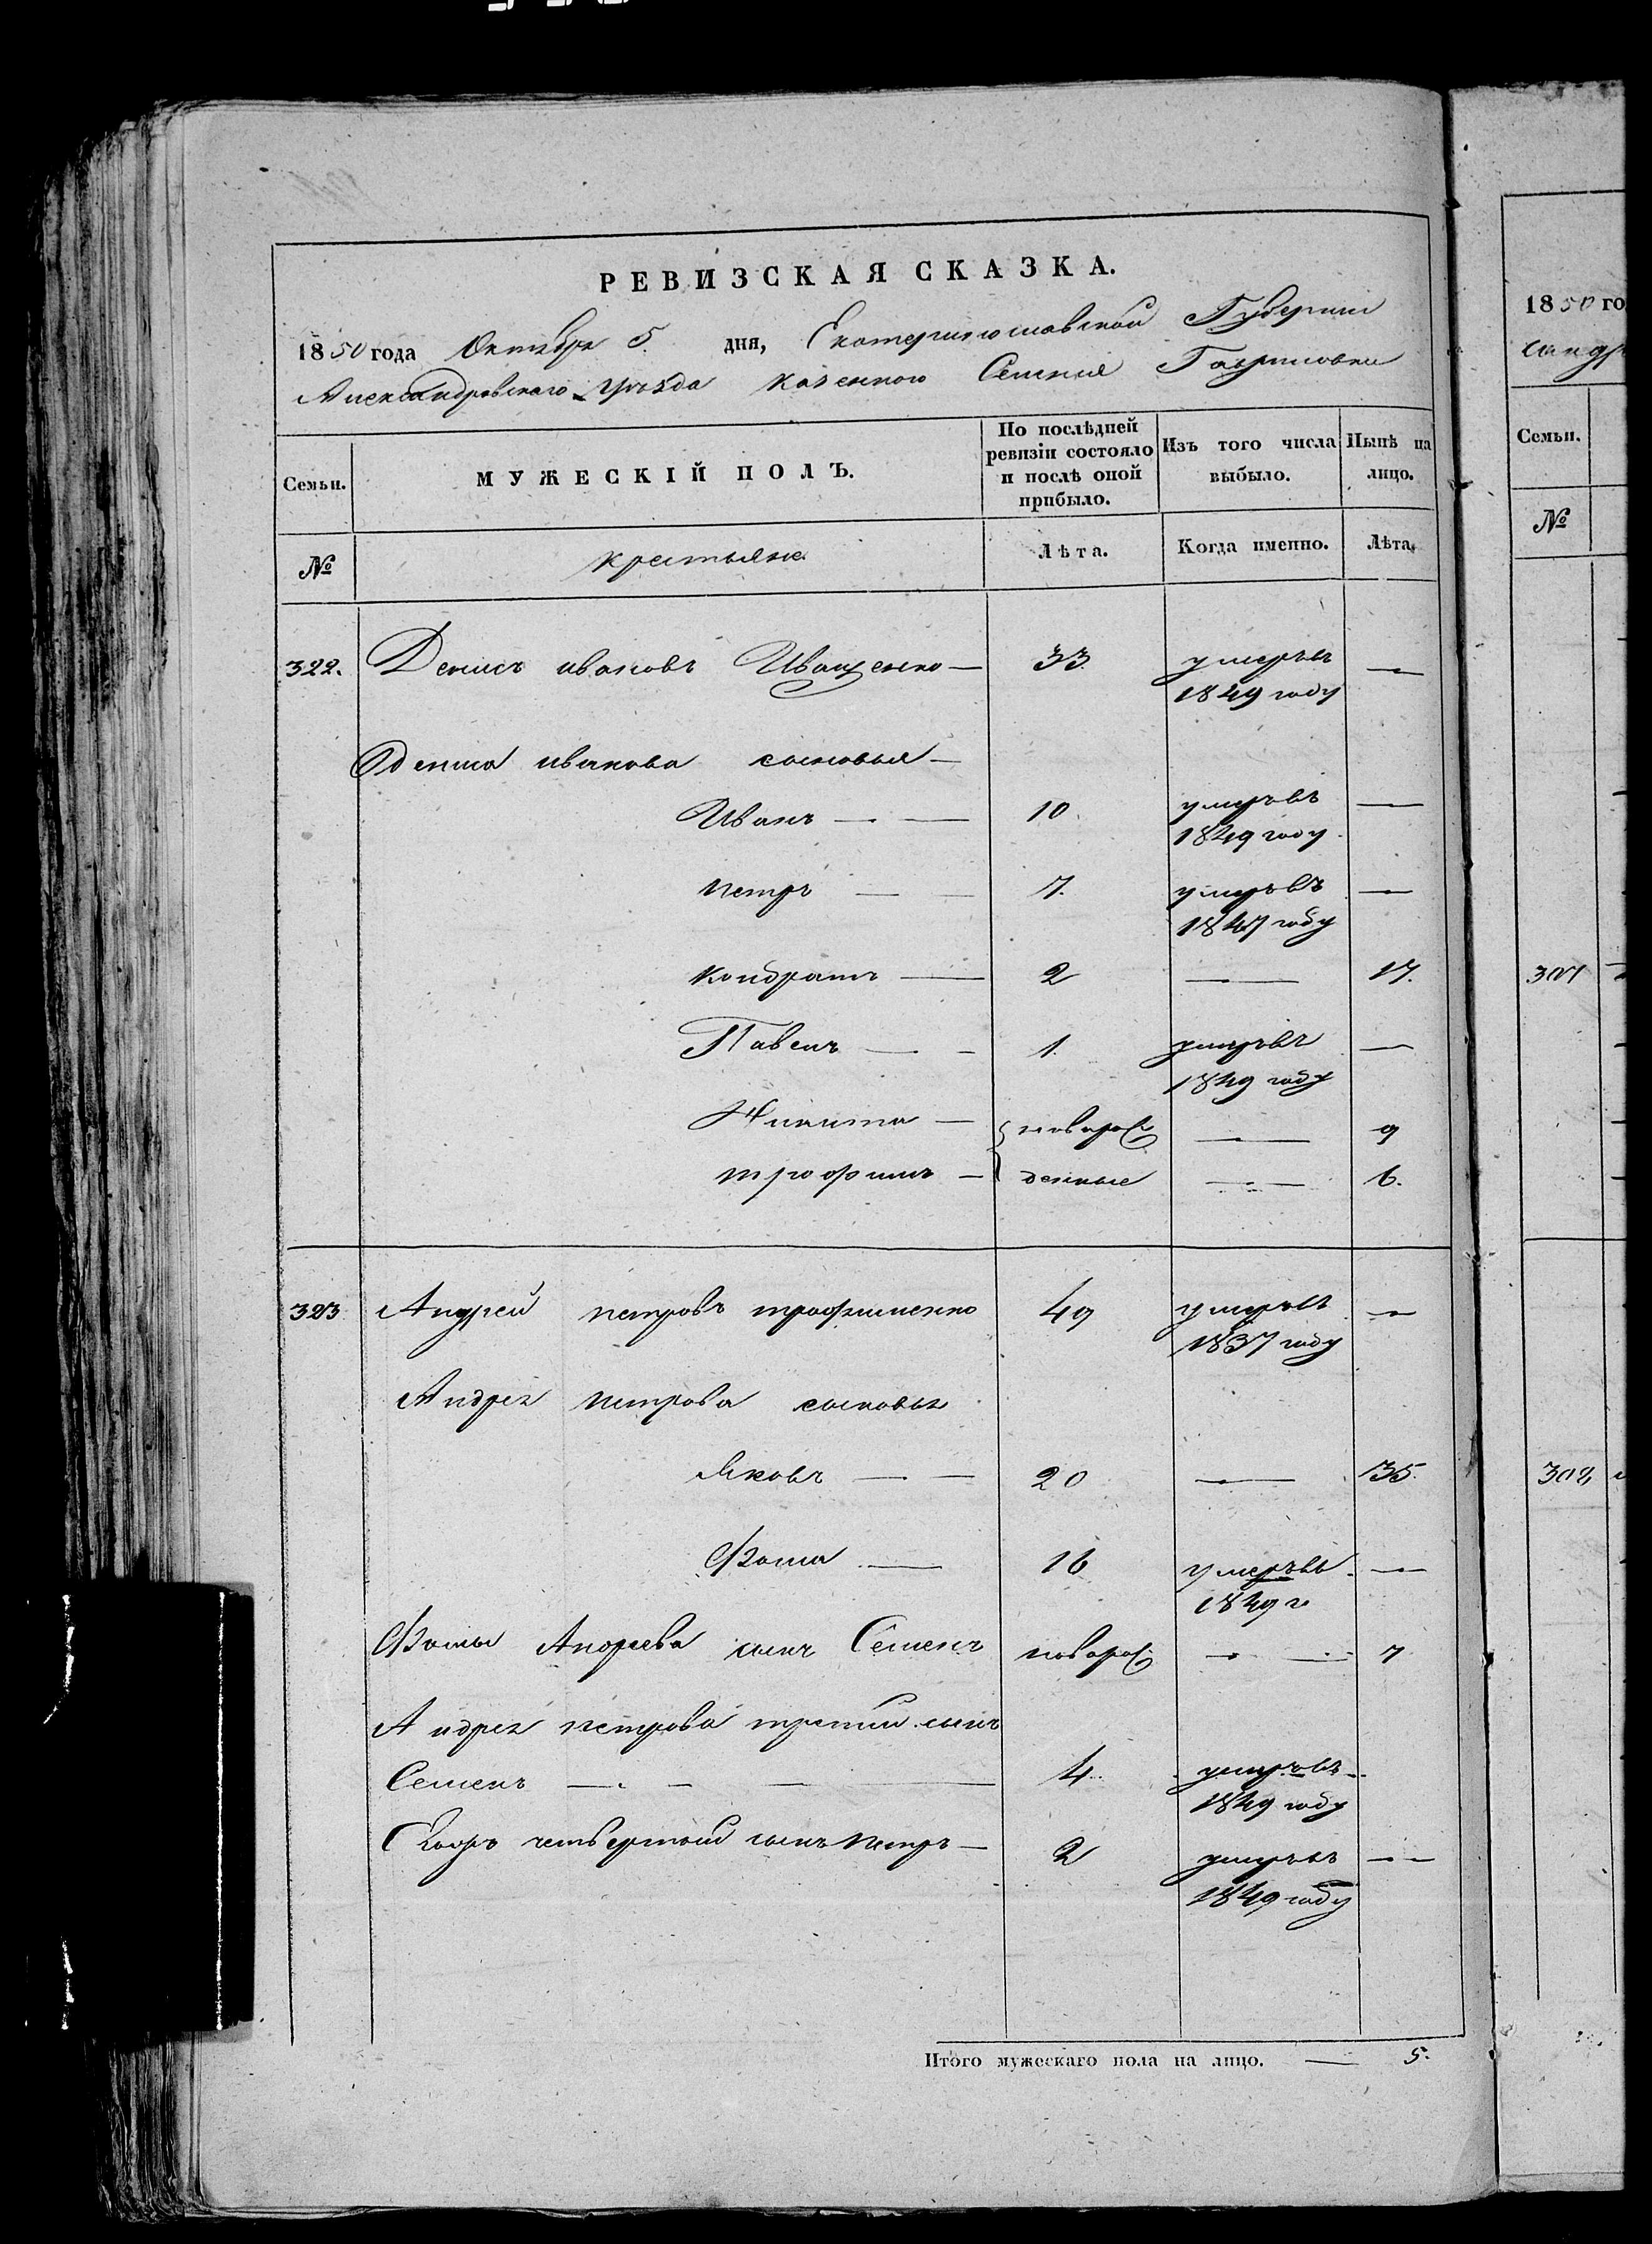 РЕВИЗСКАЯ СКАЗКА.
1850 года Октября 5. дня, Екатеринославской Губернии
Александровскаго уѣзда казенного Селения Гавриловки
Семьи. МУЖЕСКІЙ ПОЛЪ. По послѣдней ревизіи состояло и послѣ оной прибыло. Изъ того числа выбыло. Нынѣ на лицо.
№ крестьяне Лѣта. Когда именно. Лѣта.
322. Денисъ ивановъ Иващенко — 33. умеръ въ —
1849 году
Дениса иванова сыновья —
Иванъ — — 10. умеръ въ —
1849 году.
петръ — — 7. умеръ въ —
1847 году
кондратъ — 2 — 17.
Павелъ — - 1. умеръ въ —
1849 году
Никита — новорож — 9
трофимъ — денные — 6.
323 Андрей петровъ трофименко 49 умеръ въ —
1837 году
Андрея петрова сыновья
Яковъ — — 20 — 35.
Фома — 16 умеръ въ —
1849 г.
Фомы Андреева сынъ Семенъ новорож — 7
Андрея петрова третий сынъ
Семенъ — - — 4. умеръ въ
1849 году
четвертый сынъ петръ — 2 умеръ въ —
1849 году
Итого мужескаго пола на лицо. — 5.
1850 го
Семьи.
№
307
302